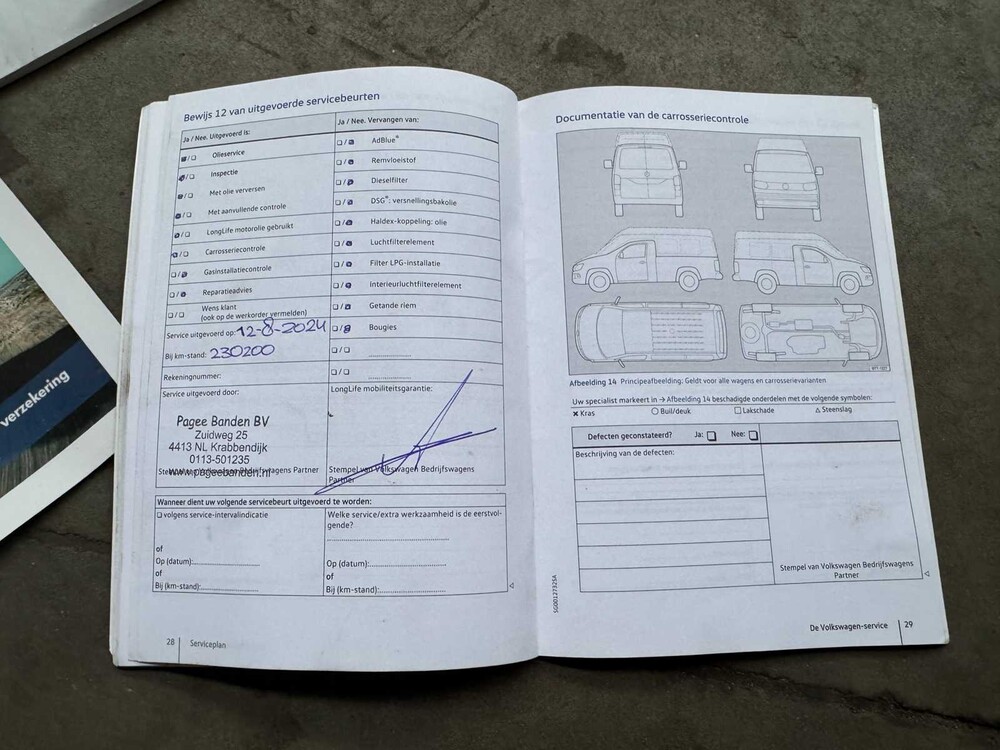 verzekering
Bewijs 12 van uitgevoerde servicebeurten
Ja / Nee. Uitgevoerd is:
Olieservice
Inspectie
Met olie verversen
Met aanvullende controle
LongLife motorolie gebruikt
Carrosseriecontrole
Gasinstallatiecontrole
Reparatieadvies
Wens klant
(ook op de werkorder vermelden)
Service uitgevoerd op: 12-8-2024
Bij km-stand: 230200
Rekeningnummer:
Service uitgevoerd door:
Pagee Banden BV
Zuidweg 25
4413 NL Krabbendijk
0113-501235
www.pageebanden.nl
Stempel van Volkswagen Bedrijfswagens Partner
Ja / Nee. Vervangen van:
AdBlue®
Remvloeistof
Dieselfilter
DSG®: versnellingsbakolie
Haldex-koppeling: olie
Luchtfilterelement
Filter LPG-installatie
Interieurluchtfilterelement
Getande riem
Bougies
LongLife mobiliteitsgarantie:
Stempel van Volkswagen Bedrijfswagens
Partner
Wanneer dient uw volgende servicebeurt uitgevoerd te worden:
volgens service-intervalindicatie
of
Op (datum):
of
Bij (km-stand):
Welke service/extra werkzaamheid is de eerstvol-
gende?
Op (datum):
of
Bij (km-stand):
28 Serviceplan
Documentatie van de carrosseriecontrole
Afbeelding 14 Principeafbeelding: Geldt voor alle wagens en carrosserievarianten
Uw specialist markeert in → Afbeelding 14 beschadigde onderdelen met de volgende symbolen:
× Kras ○ Buil/deuk □ Lakschade △ Steenslag
Defecten geconstateerd? Ja: □ Nee: □
Beschrijving van de defecten:
Stempel van Volkswagen Bedrijfswagens
Partner
SG0012732SA
De Volkswagen-service 29